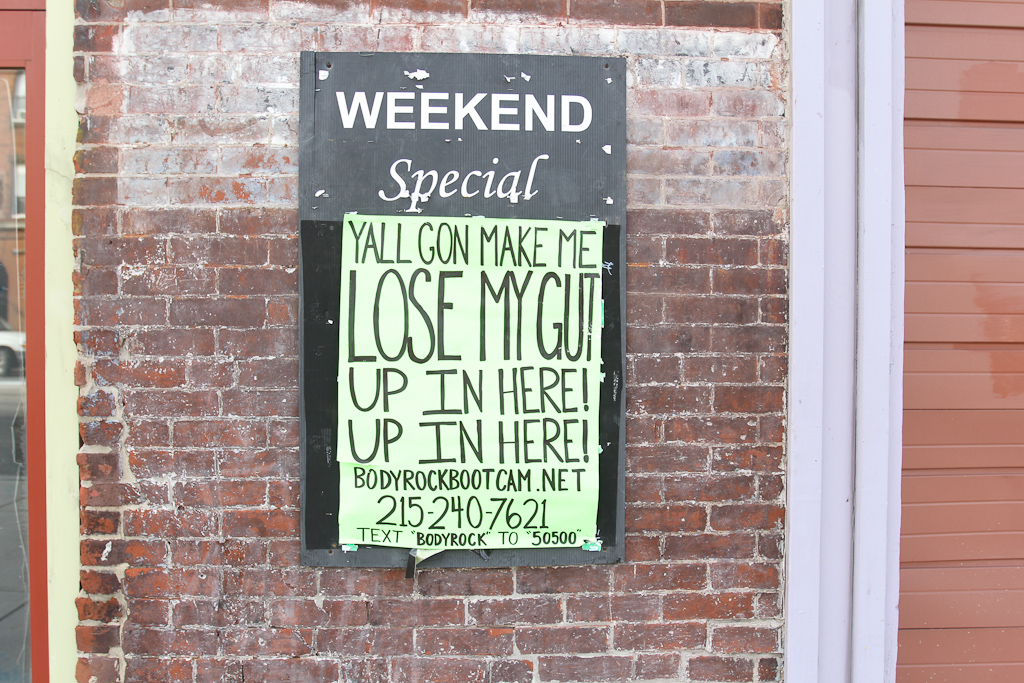 WEEKEND
Special
YALL GON MAKE ME
LOSE MY GUT
UP IN HERE!
UP IN HERE!
BODYROCKBOOTCAM.NET
215-240-7621
TEXT "BODYROCK" TO "50500"